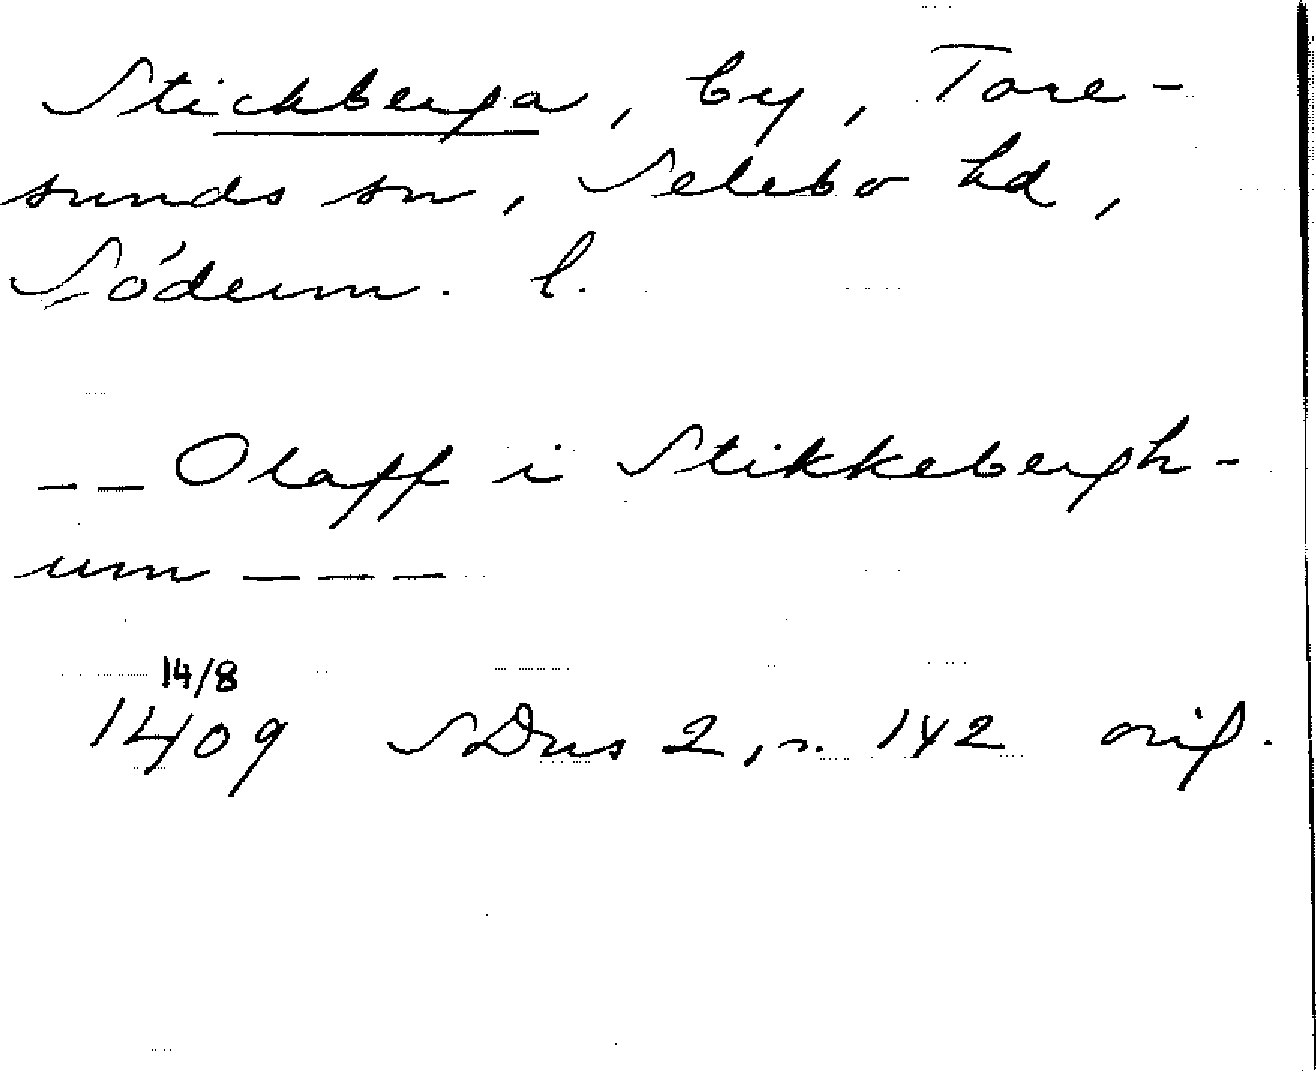 Stickberga, by, Tore-
sunds sn, Selebo hd,
Söderm. l.
_ _ Olaff i Stikkebergh-
um _ _ _
14/8
1409 SDns 2, s. 142 orig.